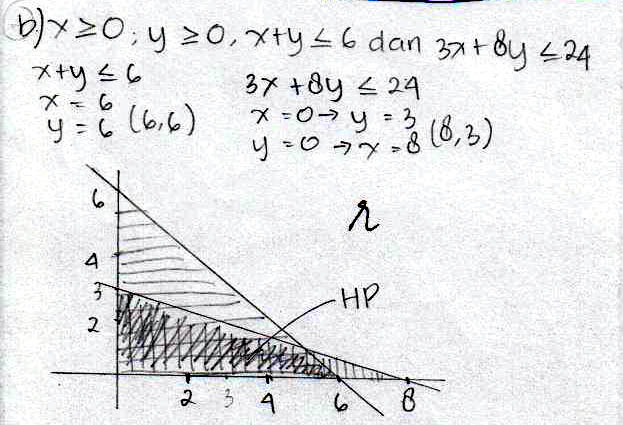 b) x ≥ 0; y ≥ 0, x+y ≤ 6 dan 3x + 8y ≤ 24
x+y ≤ 6
x = 6
y = 6 (6,6)
3x + 8y ≤ 24
x = 0 → y = 3
y = 0 → x = 8 (8,3)
6
4
3
2
HP
2 3 4 6 8